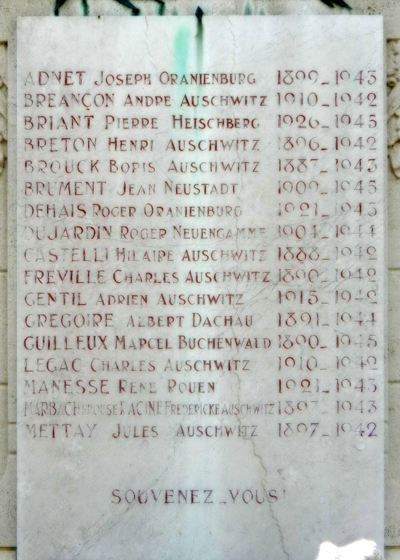 ADNET JOSEPH ORANIENBURG 1899_1943
BREANÇON ANDRE AUSCHWITZ 1910_1942
BRIANT PIERRE HEISCHBERG 1926_1945
BRETON HENRI AUSCHWITZ 1896_1942
BROUCK BORIS AUSCHWITZ 1887_1943
BRUMENT JEAN NEUSTADT 1909_1945
DEHAIS ROGER ORANIENBURG 1921_1943
DUJARDIN ROGER NEUENGAMME 1904_1944
CASTELLI HILAIRE AUSCHWITZ 1888_1942
FREVILLE CHARLES AUSCHWITZ 1890_1942
GENTIL ADRIEN AUSCHWITZ 1915_1942
GREGOIRE ALBERT DACHAU 1891_1944
GUILLEUX MARCEL BUCHENWALD 1890_1945
LEGAC CHARLES AUSCHWITZ 1910_1942
MANESSE RENE ROUEN 1921_1943
MARBACH EPOUSE RACINE FREDERICKE AUSCHWITZ 1943
METTAY JULES AUSCHWITZ 1897_1942
SOUVENEZ_VOUS!